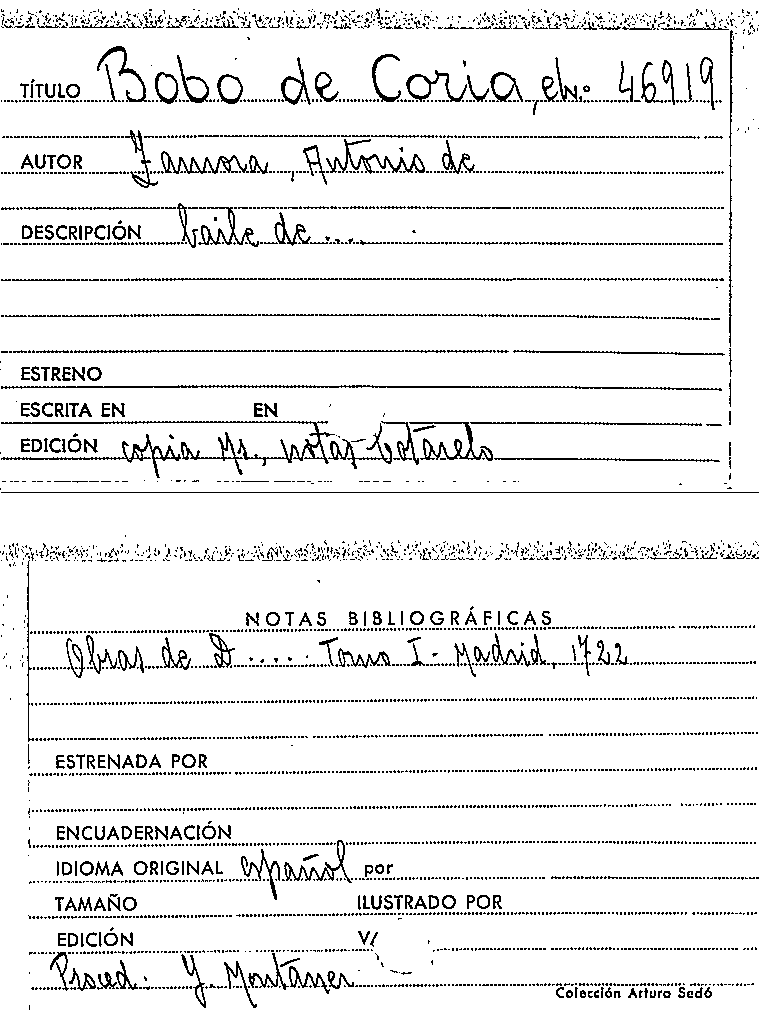 TÍTULO Bobo de Coria, el N.º 46919
AUTOR Zamora, Antonio de
DESCRIPCIÓN baile de ....
ESTRENO
ESCRITA EN EN
EDICIÓN copia Ms., notas Cotarelo
NOTAS BIBLIOGRÁFICAS
Obras de D ..... Tomo I - Madrid, 1722
ESTRENADA POR
ENCUADERNACIÓN
IDIOMA ORIGINAL español por
TAMAÑO ILUSTRADO POR
EDICIÓN V/
Proced. Y. Montaner
Colección Arturo Sedó